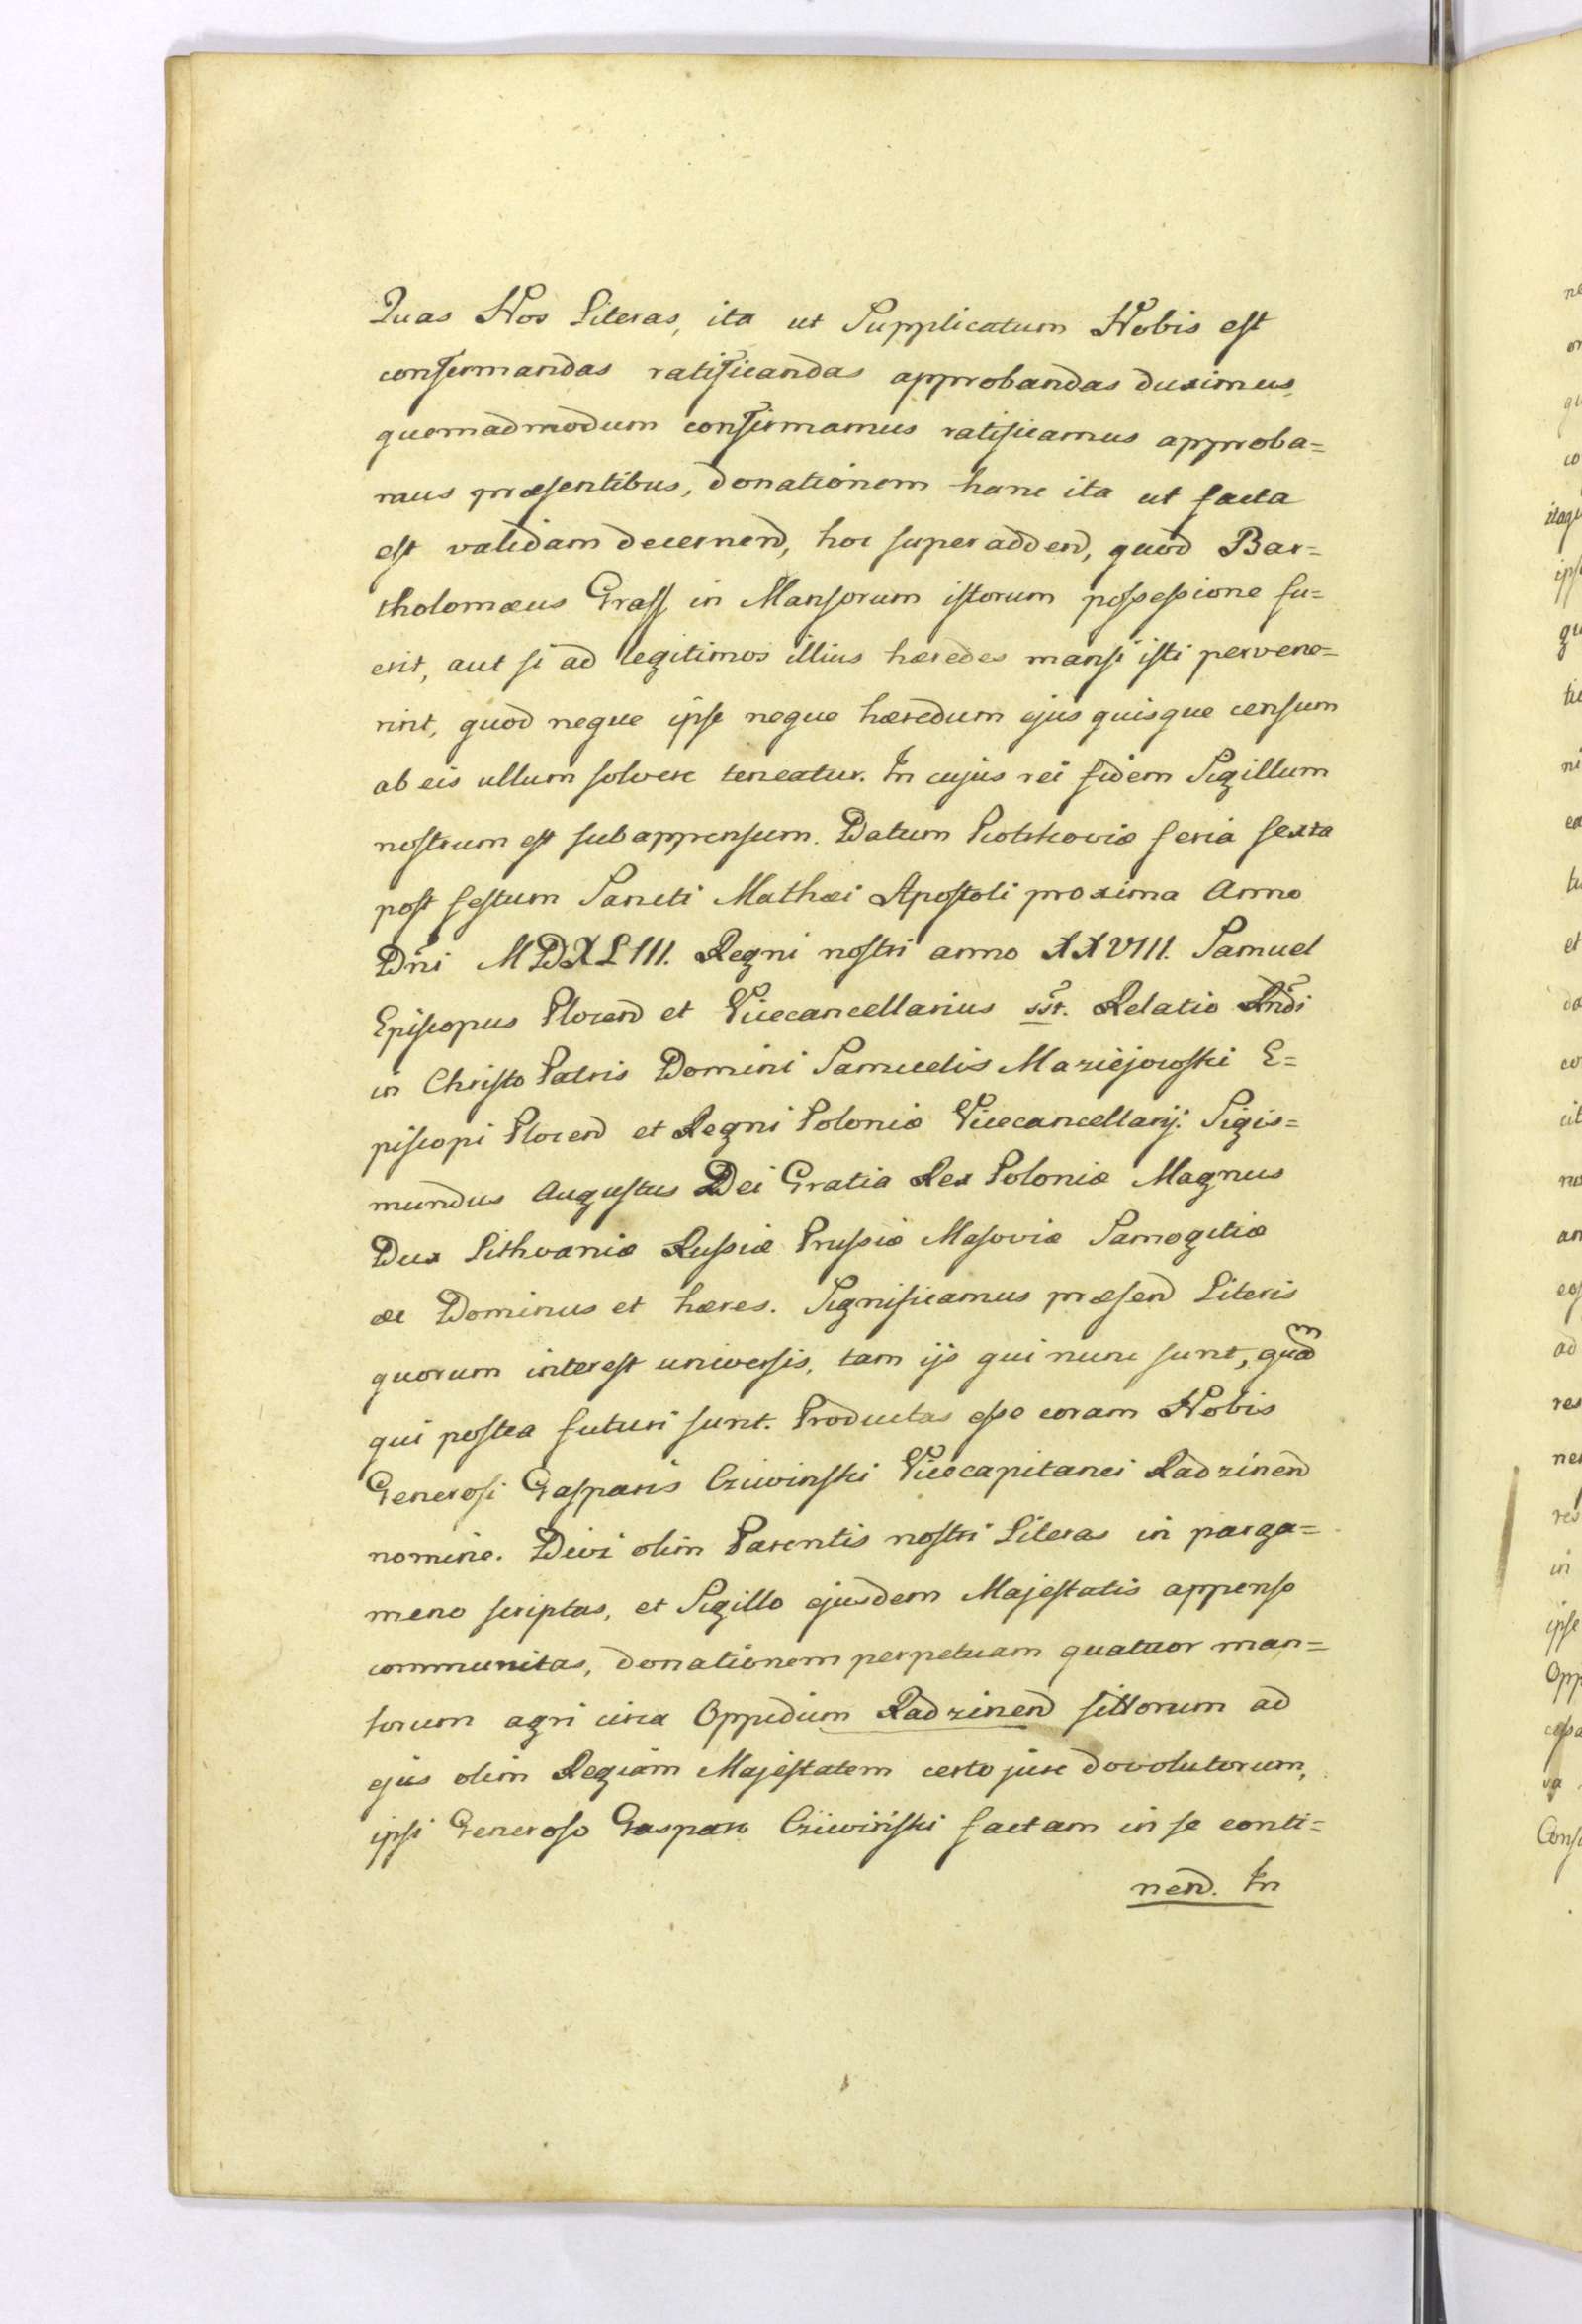 Quas Nos Literas, ita ut Supplicatum Nobis est
confirmandas ratificandas approbandas duximus,
quemadmodum confirmamus ratificamus approba=
mus præsentibus, donationem hanc ita ut facta
est validam decernend, hoc superaddend, quod Bar=
tholomæus Grass in Mansorum istorum possessione fu=
erit, aut si ad legitimos illius hæredes mansi isti pervene=
rint, quod neque ipse neque hæredum ejus quisque censum
ab eis ullum solvere teneatur. In cujus rei fidem Sigillum
nostrum est subappensum. Datum Piotrkoviæ feria sexta
post festum Sancti Mathæi Apostoli proxima Anno
Dñi MDXLIII. Regni nostri anno XXVIII. Samuel
Episcopus Plocend et Vicecancellarius sst. Relatio Rndi
in Christo Patris Domini Samuelis Maziejowski E=
piscopi Plocend et Regni Poloniæ Vicecancellarij. Sigis=
mundus Augustus Dei Gratia Rex Poloniæ Magnus
Dux Lithvaniæ Russiæ Prussiæ Masoviæ Samogitiæ
æc Dominus et hæres. Significamus præsend Literis
quorum interest universis, tam ijs qui nunc sunt, quam
qui postea futuri sunt. Productas esse coram Nobis
Generosi Gasparis Cziwinski Vicecapitanei Radzinend
nomine. Divi olim Parentis nostri Literas in parga=
meno scriptas, et Sigillo ejusdem Majestatis appenso
communitas, donationem perpetuam quatuor man=
sorum agri circa Oppidum Radzinend sittorum ad
ejus olim Regiam Majestatem certo jure dovolutorum,
ipsi Generoso Gaspare Cziwinski factam in se conti=
nend. In